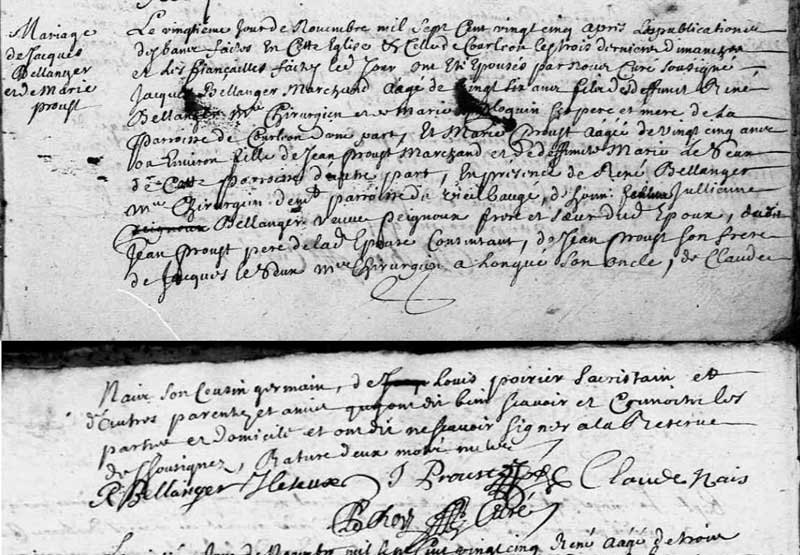 Mariage
de Jacques
Bellanger
et de Marie
proust
Le vingtieme Jour de Novembre mil Sept Cent vingt cinq apres la publication
des bans faites En Cette Eglise & Celle de Courleon les trois derniers dimanches
et les fiancailles faites led Jour ont Eté Epousés par nous Curé soussigné
Jacques Bellanger Marchand aagé de vingt six ans fils de deffunct René
Bellanger Me Chirurgien et Marie ses pere et mere de la
parroisse de Courleon dune part, Et Marie Proust aagée de vingt cinq ans
ou Environ fille de Jean Proust Marchand et de deffuncte Marie le Seux
de Cette parroisse dautre part, En presence de René Bellanger
Me Chirurgien demt parroisse du vieil baugé, de Jullienne
Bellanger veuve peignoux frere et soeur dud Epoux, dudit
Jean Proust pere de lad Epouse Consentant, de Jean Proust son frere
de Jacques le Seux Me Chirurgien a Longué son oncle, de Claude
Nais son Cousin germain, de Louis poirier Sacristain et
d'autres parentz et amis qui ont dit bien scavoir et Connoitre les
parties et domicile et ont dit ne scavoir signer a la Reserve
des soussignez, Rature deux motz nuls
R Bellanger J Proust Claude Nais
Curé
mil Sept Cent vingt cinq René aagé de trois